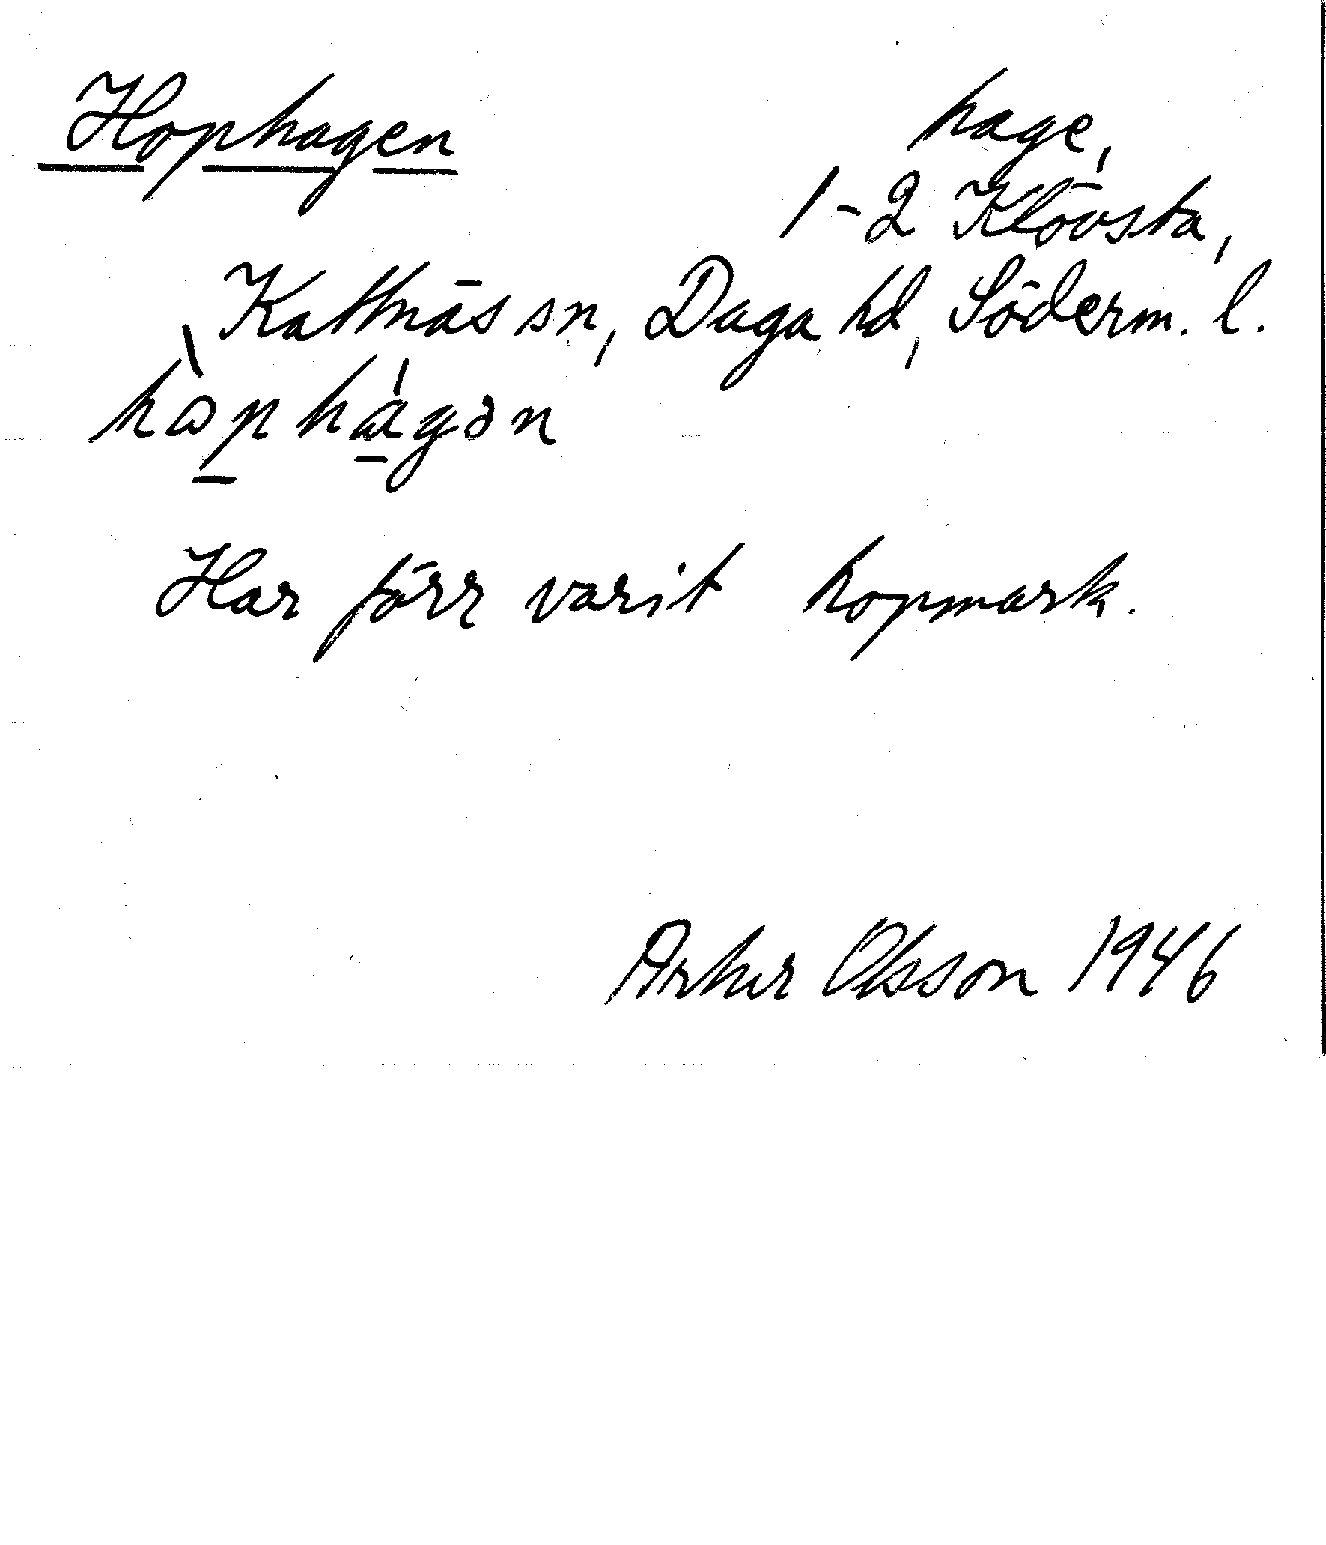 Hophagen
hage,
1-2 Klövsta,
Kattnäs sn, Daga hd, Söderm. l.
hɷ̀phágən
Har förr varit hopmark.
Artur Olsson 1946